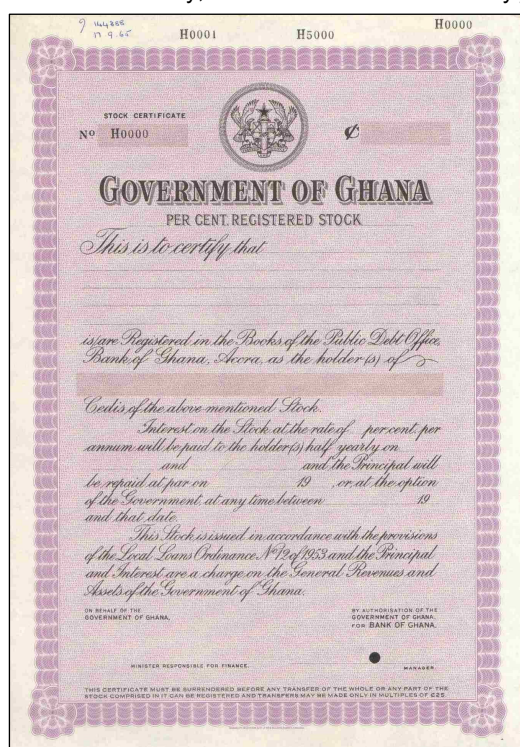 9 144355
17 9.65
H0001 H5000 H0000
STOCK CERTIFICATE
No H0000 ₵
GOVERNMENT OF GHANA
PER CENT. REGISTERED STOCK
This is to certify that
is/are Registered in the Books of the Public Debt Office,
Bank of Ghana, Accra, as the holder(s) of
Cedis, of the above-mentioned Stock.
Interest on the Stock at the rate of per cent. per
annum will be paid to the holder(s) half yearly on
and and the Principal will
be repaid at par on 19 , or at the option
of the Government, at any time between 19
and that date.
This Stock is issued in accordance with the provisions
of the Local Loans Ordinance No 12 of 1953 and the Principal
and Interest are a charge on the General Revenues and
Assets of the Government of Ghana.
ON BEHALF OF THE
GOVERNMENT OF GHANA,
BY AUTHORISATION OF THE
GOVERNMENT OF GHANA,
FOR BANK OF GHANA,
MINISTER RESPONSIBLE FOR FINANCE.
MANAGER.
THIS CERTIFICATE MUST BE SURRENDERED BEFORE ANY TRANSFER OF THE WHOLE OR ANY PART OF THE
STOCK COMPRISED IN IT CAN BE REGISTERED AND TRANSFERS MAY BE MADE ONLY IN MULTIPLES OF ₵25.